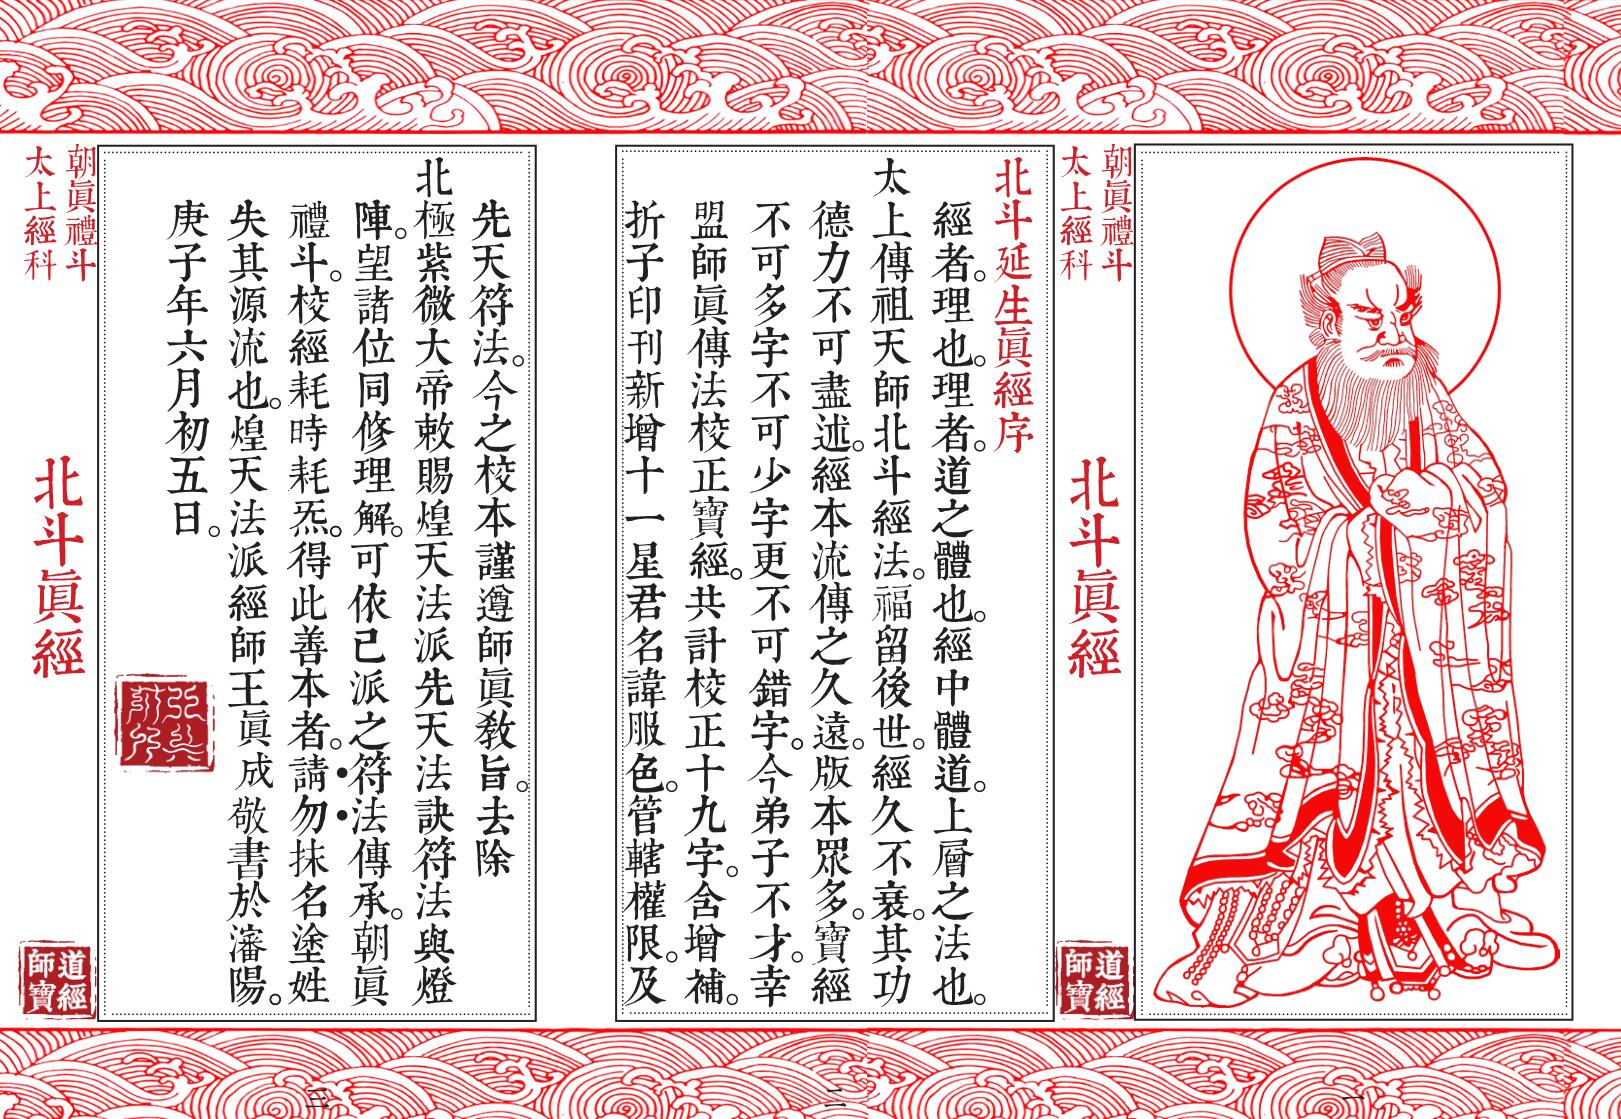 朝眞禮斗
太上經科
北斗眞經
道經
師寶
一
北斗延生眞經序
經者。理也。理者。道之體也。經中體道。上層之法也。
太上傳祖天師北斗經法。福留後世。經久不衰。其功
德力不可盡述。經本流傳之久遠。版本眾多。寶經
不可多字不可少字更不可錯字。今弟子不才。幸
盟師眞傳法校正寶經。共計校正十九字。含增補。
折子印刊新增十一星君名諱服色。管轄權限。及
二
先天符法。今之校本謹遵師眞教旨。去除
北極紫微大帝敕賜煌天法派先天法訣符法與燈
陣。望諸位同修理解。可依己派之符•法•傳承。朝眞
禮斗。校經耗時耗炁。得此善本者。請勿抹名塗姓
失其源流也。煌天法派經師王眞成敬書於瀋陽。
庚子年六月初五日。
三
朝眞禮斗
太上經科
北斗眞經
道經
師寶